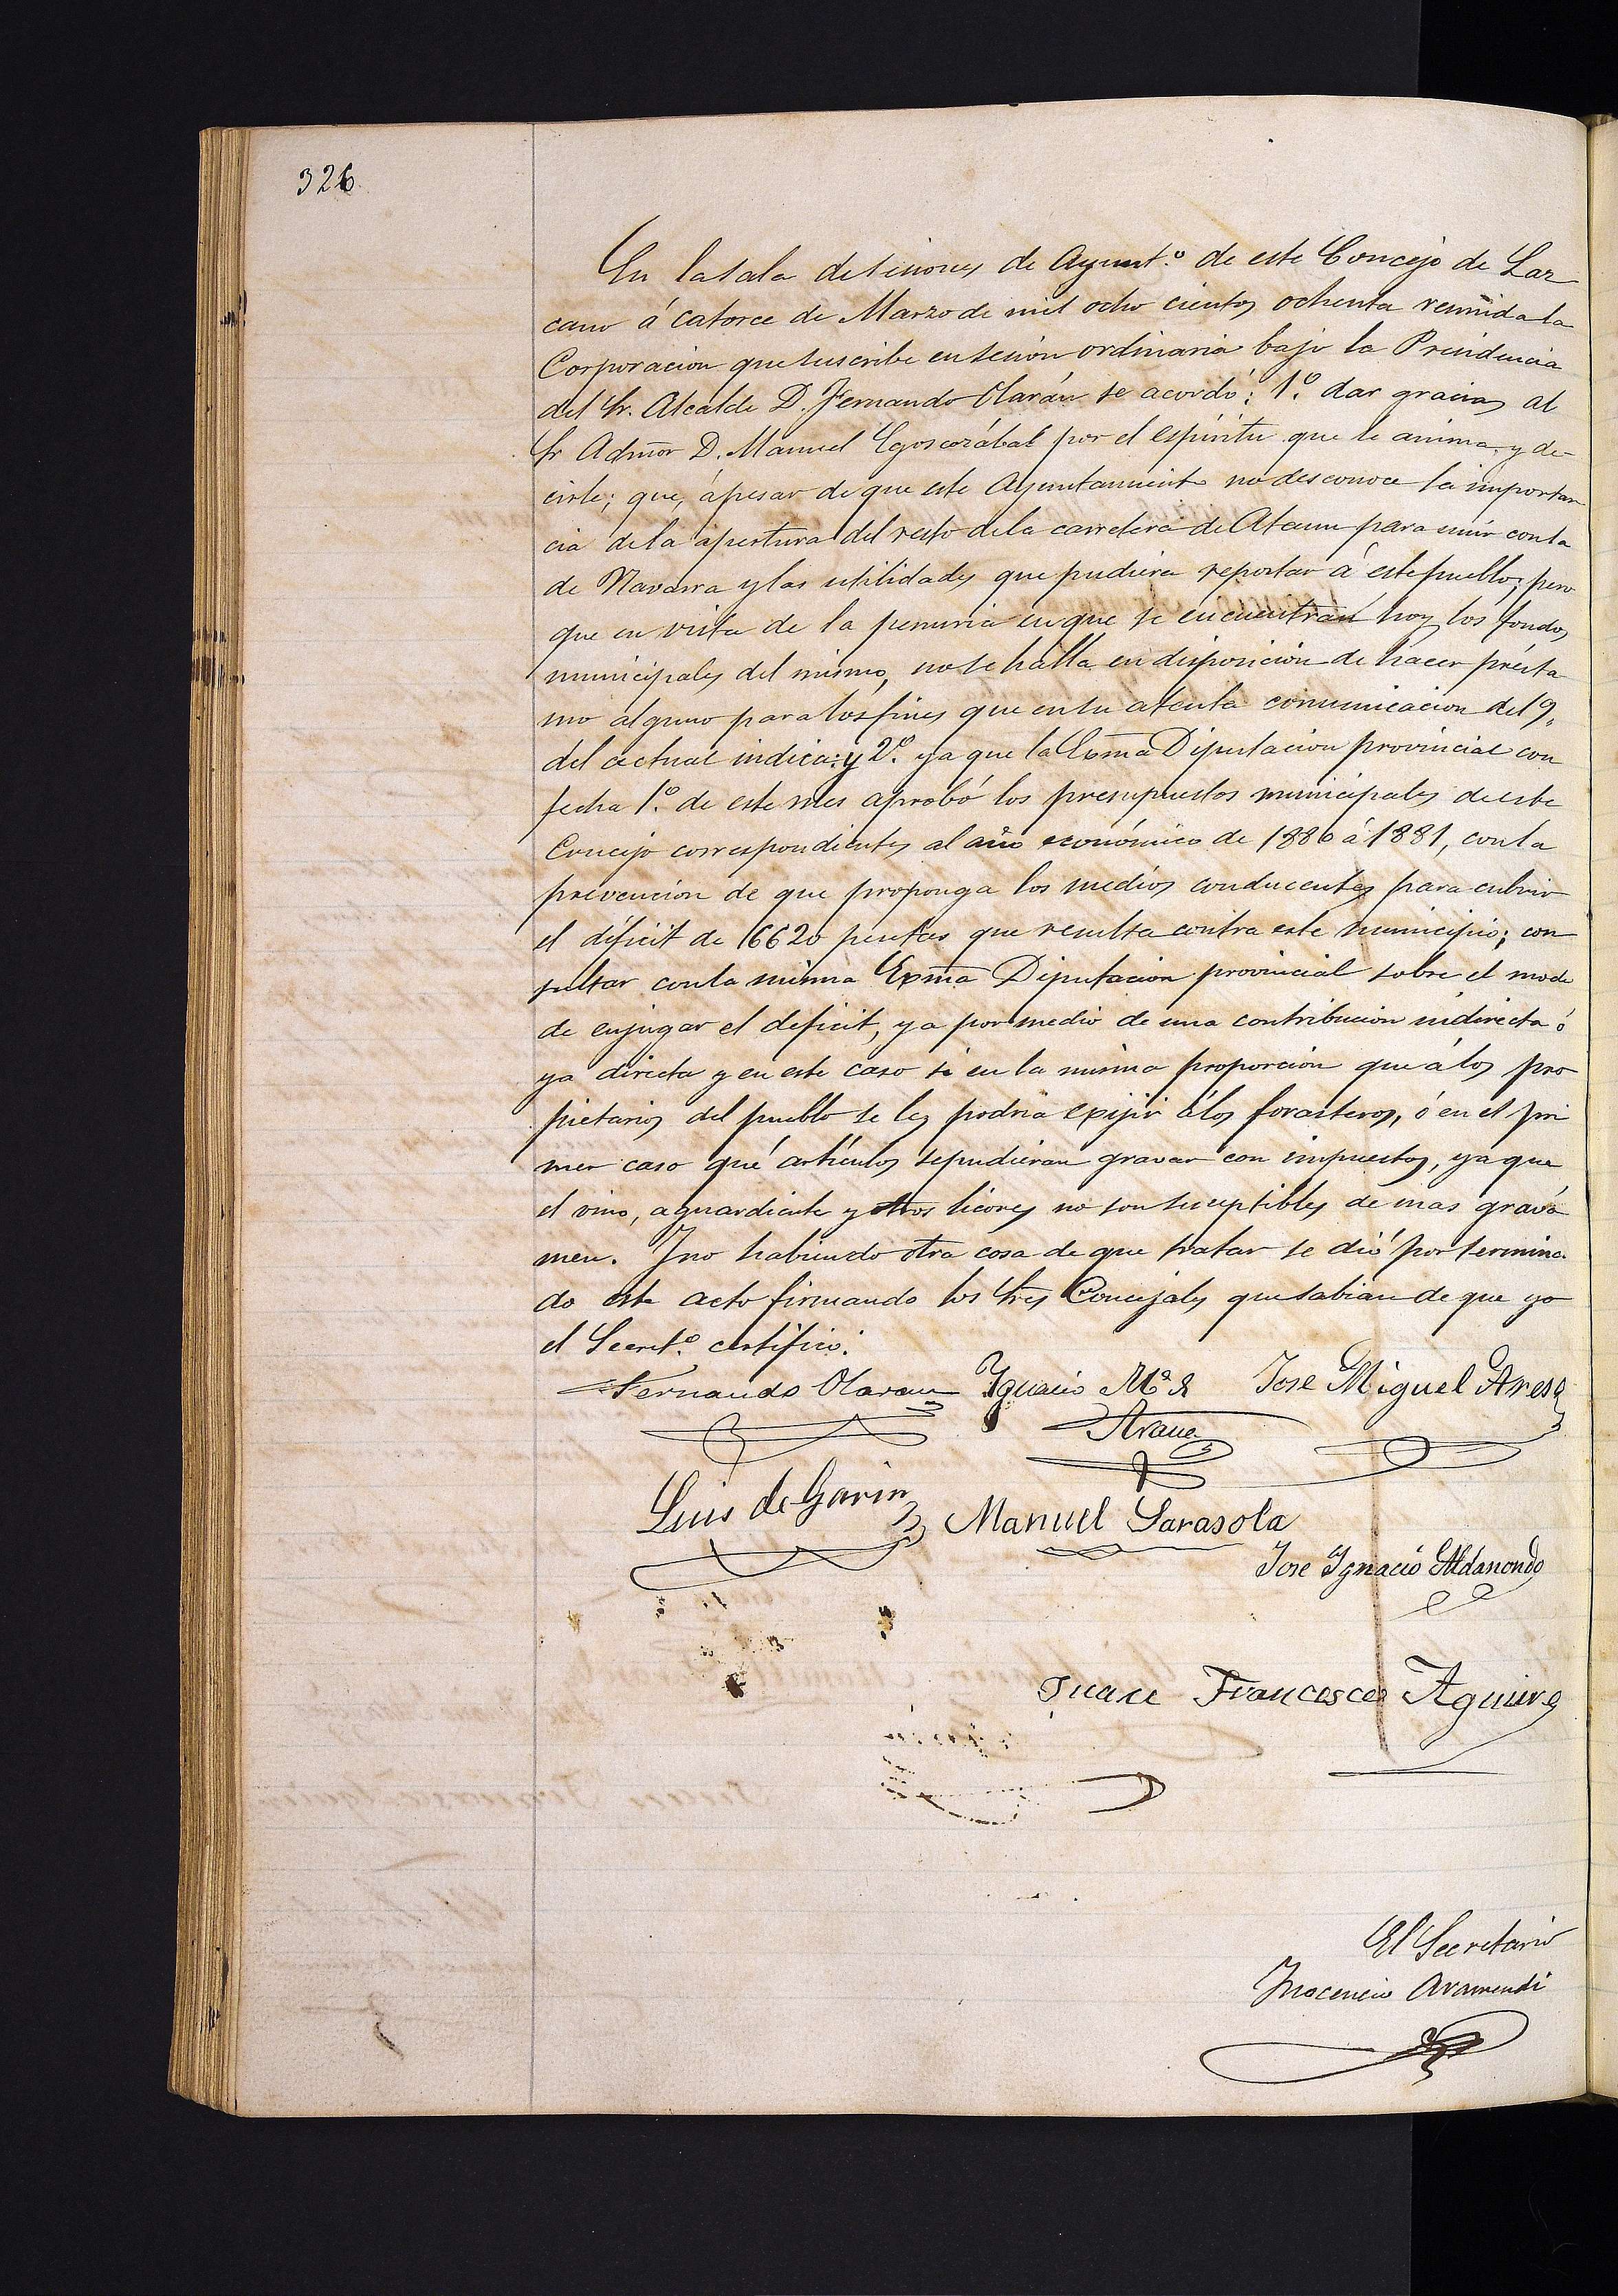 326
En la sala de sesiones de Ayunt.º de este Concejo de Laz
cano á catorce de Marzo de mil ocho cientos ochenta reunida la
Corporacion que suscribe en sesión ordinaria bajo la Presidencia
del Sr. Alcalde D. Fernando Olarán se acordó: 1.º dar gracias al
Sr Admor D. Manuel Egoscozábal por el espíritu que le anima y de-
cirle; que, ápesar de que este Ayuntamiento no desconoce la importan
cia de la apertura del resto de la carretera de Ataun para unir con la
de Navarra y las utilidades que pudiera reportar á este pueblo; pero
que en vista de la penuria en que se encuentran hoy los fondos
municipales del mismo, no se halla en disposición de hacer présta
mo alguno para los fines que en su atenta comunicacion del 9,
del actual indica: y 2.º ya que la Exma Diputacion provincial con
fecha 1.º de este mes aprobó los presupuestos municipales de este
Concejo correspondientes al año económico de 1880 á 1881, con la
prevencion de que proponga los medios conducentes para cubrir
el déficit de 16620 pesetas que resulta contra este municipio; con
sultar con la misma Exma Diputacion provincial sobre el modo
de enjugar el deficit, ya por medio de una contribucion indirecta ó
ya directa y en este caso si en la misma proporcion que á los pro
pietarios del pueblo se les podria exijir á los forasteros, ó en el pri
mer caso qué artículos se pudieran gravar con impuestos, ya que
el vino, aguardiente y otros licores no son suceptibles de mas gravá
men. Y no habiendo otra cosa de que tratar se dió por termina
do este acto firmando los Sres Concejales que sabian de que yo
el Secret.º certifico.
Fernando Olaran Ignacio Mª de Jose Miguel Aresa
Arana
Luis de Garin Manuel Sarasola
Jose Ignacio Aldanondo
Juan Francisco Aguirre
El Secretario
Inocencio Aramendi